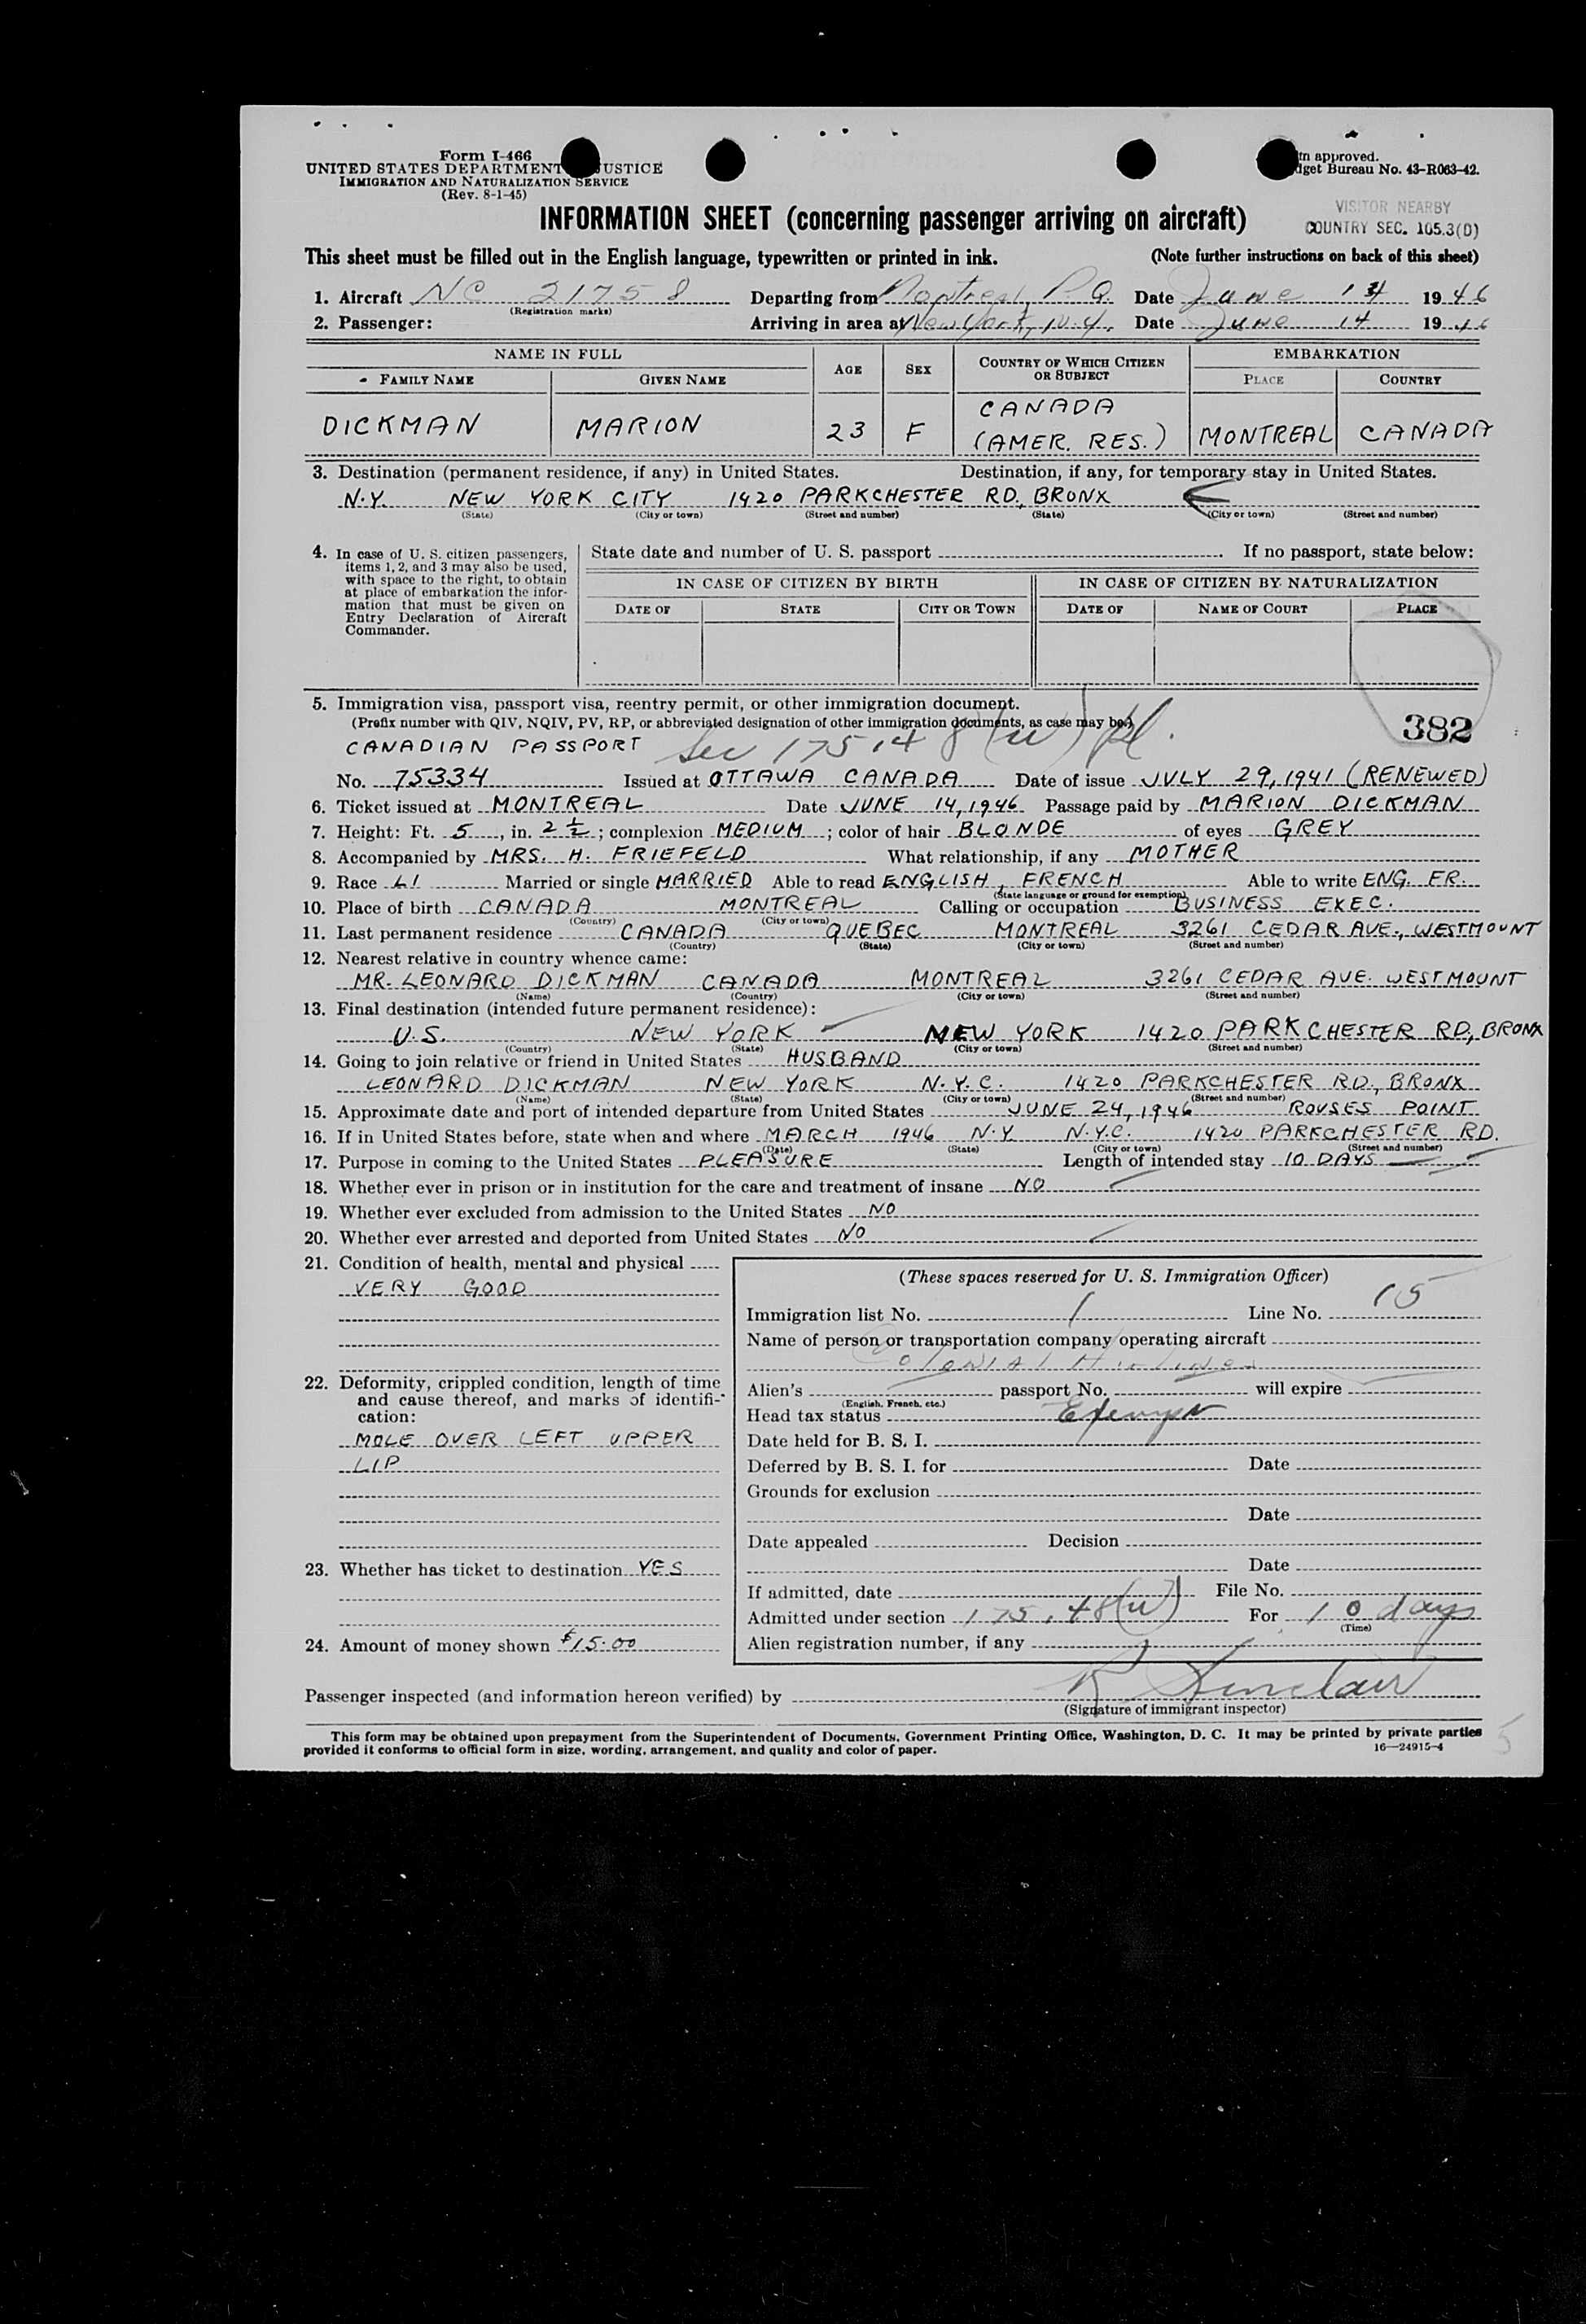 Form I-466
UNITED STATES DEPARTMENT USTICE
IMMIGRATION AND NATURALIZATION SERVICE
(Rev. 8-1-45)
approved.
dget Bureau No. 43-R063-42.
VISITOR NEARBY
COUNTRY SEC. 105.3(D)
INFORMATION SHEET (concerning passenger arriving on aircraft)
This sheet must be filled out in the English language, typewritten or printed in ink. (Note further instructions on back of this sheet)
1. Aircraft NC 21758 Departing from Montreal, P.Q. Date June 14 1946
(Registration marks)
2. Passenger: Arriving in area at New York, N.Y. Date June 14 1946
NAME IN FULL AGE SEX COUNTRY OF WHICH CITIZEN OR SUBJECT EMBARKATION
FAMILY NAME GIVEN NAME PLACE COUNTRY
DICKMAN MARION 23 F CANADA (AMER. RES.) MONTREAL CANADA
3. Destination (permanent residence, if any) in United States. Destination, if any, for temporary stay in United States.
N.Y. NEW YORK CITY 1420 PARKCHESTER RD., BRONX
(State) (City or town) (Street and number) (State) (City or town) (Street and number)
4. In case of U. S. citizen passengers, items 1, 2, and 3 may also be used, with space to the right, to obtain at place of embarkation the information that must be given on Entry Declaration of Aircraft Commander.
State date and number of U. S. passport If no passport, state below:
IN CASE OF CITIZEN BY BIRTH IN CASE OF CITIZEN BY NATURALIZATION
DATE OF STATE CITY OR TOWN DATE OF NAME OF COURT PLACE
5. Immigration visa, passport visa, reentry permit, or other immigration document.
(Prefix number with QIV, NQIV, PV, RP, or abbreviated designation of other immigration documents, as case may be.)
382
CANADIAN PASSPORT Sec 175.48(w)
No. 75334 Issued at OTTAWA CANADA Date of issue JULY 29, 1941 (RENEWED)
6. Ticket issued at MONTREAL Date JUNE 14, 1946 Passage paid by MARION DICKMAN
7. Height: Ft. 5, in. 2 1/2; complexion MEDIUM; color of hair BLONDE of eyes GREY
8. Accompanied by MRS. H. FRIEFELD What relationship, if any MOTHER
9. Race Married or single MARRIED Able to read ENGLISH, FRENCH Able to write ENG. FR.
(State language or ground for exemption)
10. Place of birth CANADA MONTREAL Calling or occupation BUSINESS EXEC.
(Country) (City or town)
11. Last permanent residence CANADA QUEBEC MONTREAL 3261 CEDAR AVE., WESTMOUNT
(Country) (State) (City or town) (Street and number)
12. Nearest relative in country whence came:
MR. LEONARD DICKMAN CANADA MONTREAL 3261 CEDAR AVE. WESTMOUNT
(Name) (Country) (City or town) (Street and number)
13. Final destination (intended future permanent residence):
U.S. NEW YORK NEW YORK 1420 PARKCHESTER RD., BRONX
(Country) (State) (City or town) (Street and number)
14. Going to join relative or friend in United States HUSBAND
LEONARD DICKMAN NEW YORK N.Y.C. 1420 PARKCHESTER RD., BRONX
(Name) (State) (City or town) (Street and number)
15. Approximate date and port of intended departure from United States JUNE 24, 1946 ROUSES POINT
16. If in United States before, state when and where MARCH 1946 N.Y. N.Y.C. 1420 PARKCHESTER RD.
(Date) (State) (City or town) (Street and number)
17. Purpose in coming to the United States PLEASURE Length of intended stay 10 DAYS
18. Whether ever in prison or in institution for the care and treatment of insane NO
19. Whether ever excluded from admission to the United States NO
20. Whether ever arrested and deported from United States NO
21. Condition of health, mental and physical
VERY GOOD
22. Deformity, crippled condition, length of time and cause thereof, and marks of identification:
MOLE OVER LEFT UPPER
LIP
23. Whether has ticket to destination YES
24. Amount of money shown $15.00
(These spaces reserved for U. S. Immigration Officer)
Immigration list No. 1 Line No. 15
Name of person or transportation company operating aircraft
Colonial Airlines
Alien's passport No. will expire
(English, French, etc.)
Head tax status Exempt
Date held for B. S. I.
Deferred by B. S. I. for Date
Grounds for exclusion
Date
Date appealed Decision
Date
If admitted, date File No.
Admitted under section 175.48(w) For 10 days
(Time)
Alien registration number, if any
Passenger inspected (and information hereon verified) by R Sinclair
(Signature of immigrant inspector)
This form may be obtained upon prepayment from the Superintendent of Documents, Government Printing Office, Washington, D. C. It may be printed by private parties
provided it conforms to official form in size, wording, arrangement, and quality and color of paper. 16—24915-4